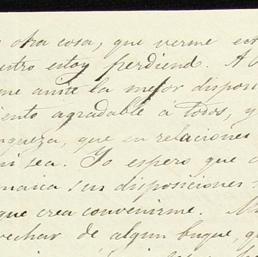 otra cosa, que verme en
estoy perdiend. A
me anite la mejor dispon
iento agradable a todos, y
nqueza, que en relaciones
ni sea. Yo espero que
maica sus disposiciones
que crea convenirme.
vechar de algun buque, q